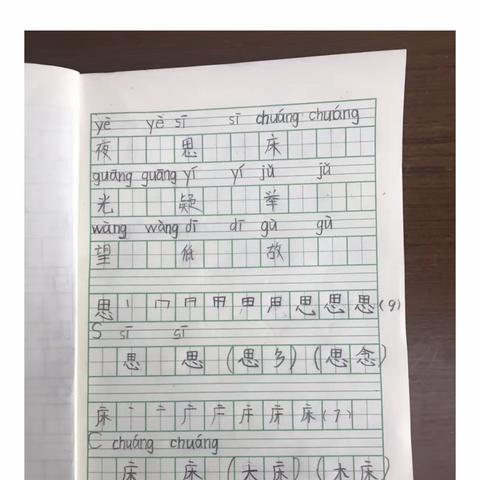 yè yè sī sī chuáng chuáng
夜 思 床
guāng guāng yí yí jǔ jǔ
光 疑 举
wàng wàng dī dī gù gù
望 低 故
思 丨 冂 冂 田 田 田 思 思 思 (9)
S sī sī
思 思 (思乡) (思念)
床 丶 亠 广 庁 庄 床 床 (7)
C chuáng chuáng
床 床 (大床) (木床)